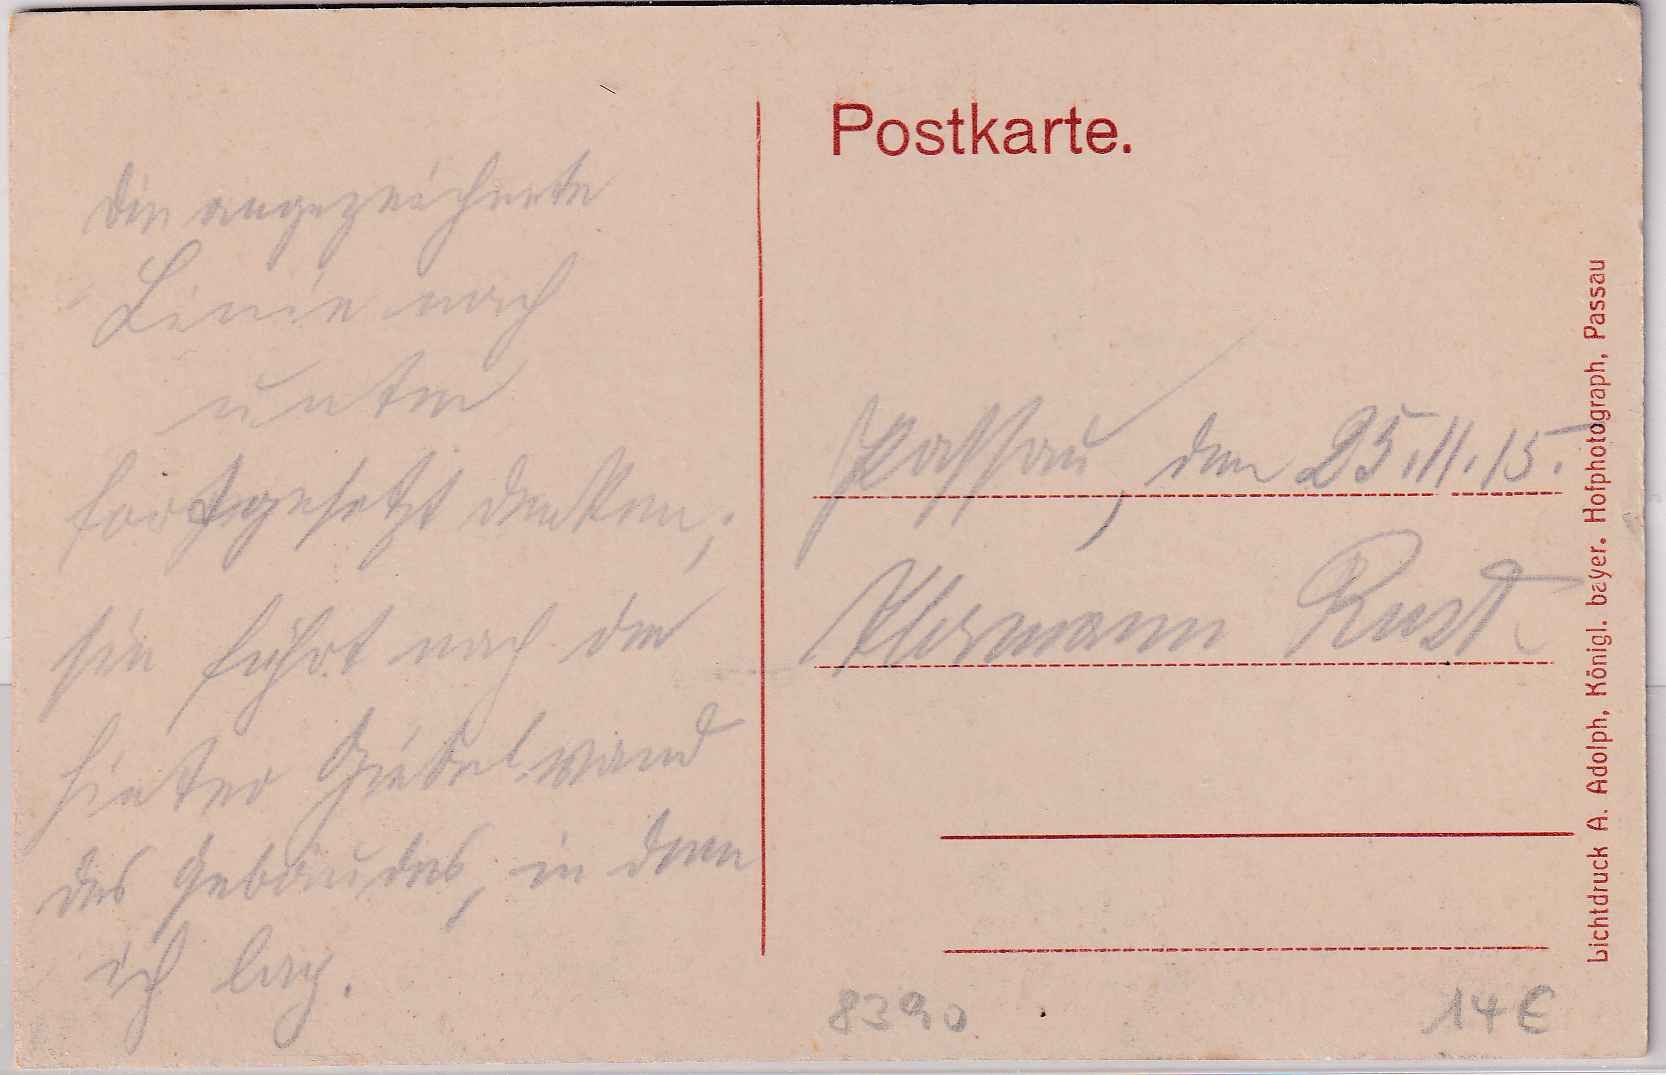 Postkarte.
die angezeichnete
Linie nach
unten
fortgesetzt denken;
sie führt nach der
hinter Giebelwand
des Gebäudes, in dem
ich lag.
Passau, den 25.11.15.
Hermann Rust.
Lichtdruck A. Adolph, Königl. bayer. Hofphotograph, Passau
8390
14 €